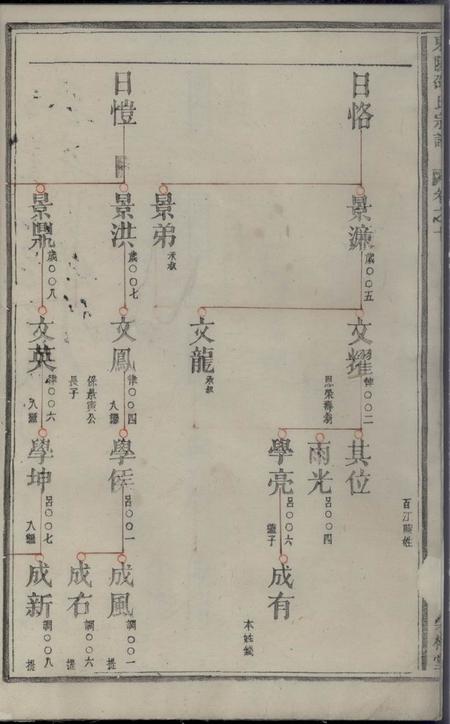 日恪
景濂
歲〇〇五
文耀
律〇〇二
其位
雨光
呂〇〇四
學亮
呂〇〇六
繼子
成有
本姓錢
景弟
承叔
文龍
承叔
日愷
景洪
歲〇〇七
文鳳
律〇〇四
入繼
係景寅公
長子
學侯
呂〇〇一
成風
調〇〇一
提
成右
調〇〇六
提
景鼎
歲〇〇八
文英
律〇〇六
入繼
學坤
呂〇〇七
入繼
成新
調〇〇八
提